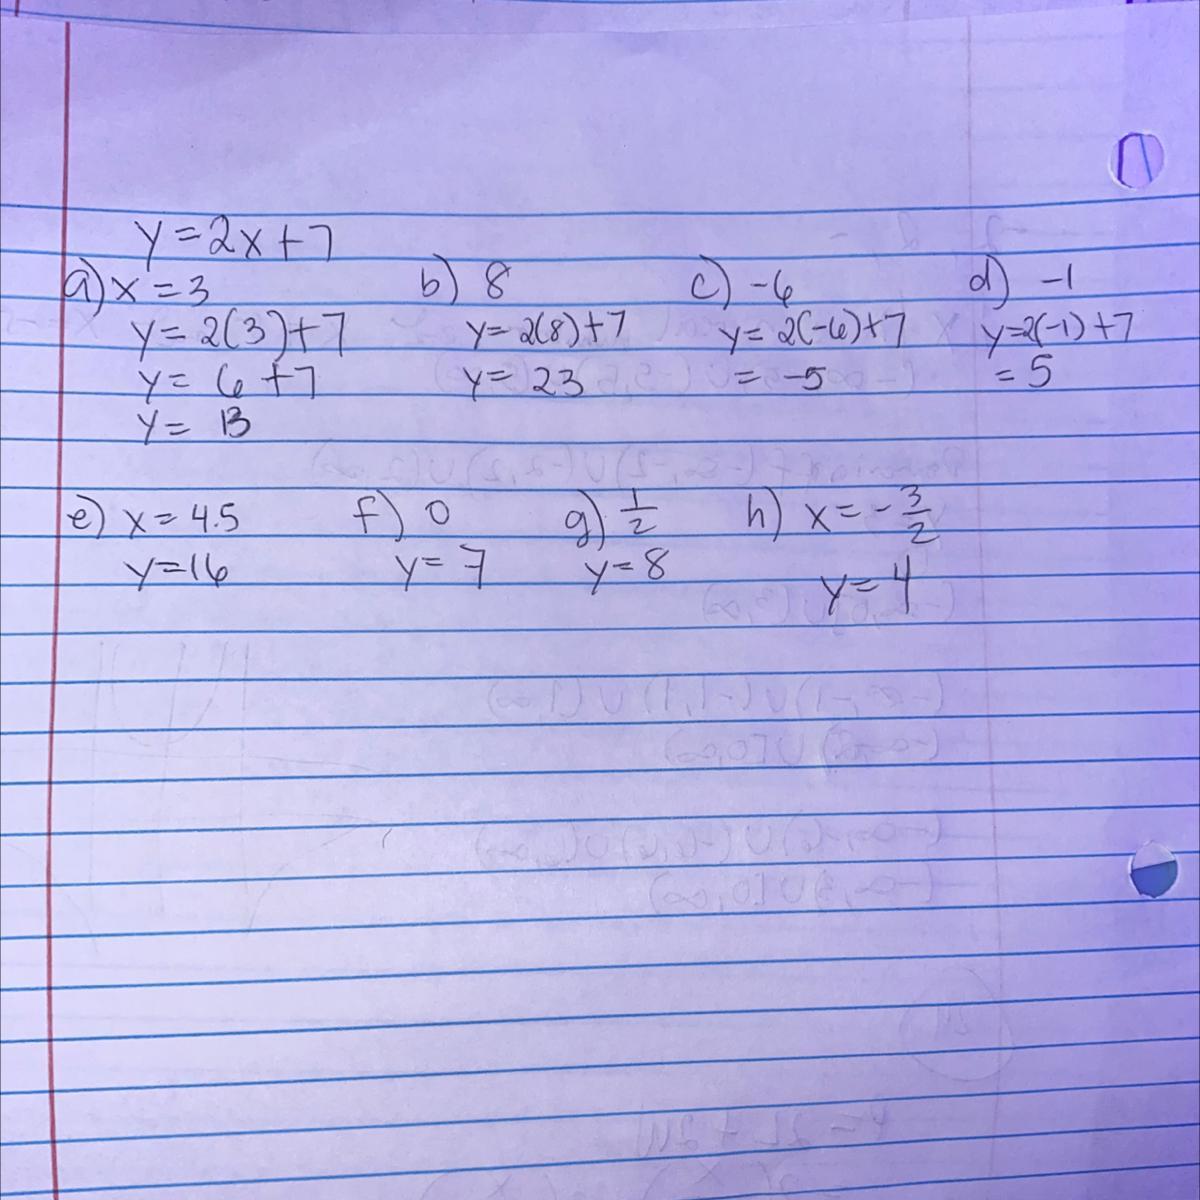 y = 2x + 7
a) x = 3 b) 8 c) -6 d) -1
y = 2(3) + 7 y = 2(8) + 7 y = 2(-6) + 7 y = 2(-1) + 7
y = 6 + 7 y = 23 = -5 = 5
y = 13
e) x = 4.5 f) 0 g) 1/2 h) x = - 3/2
y = 16 y = 7 y = 8 y = 4